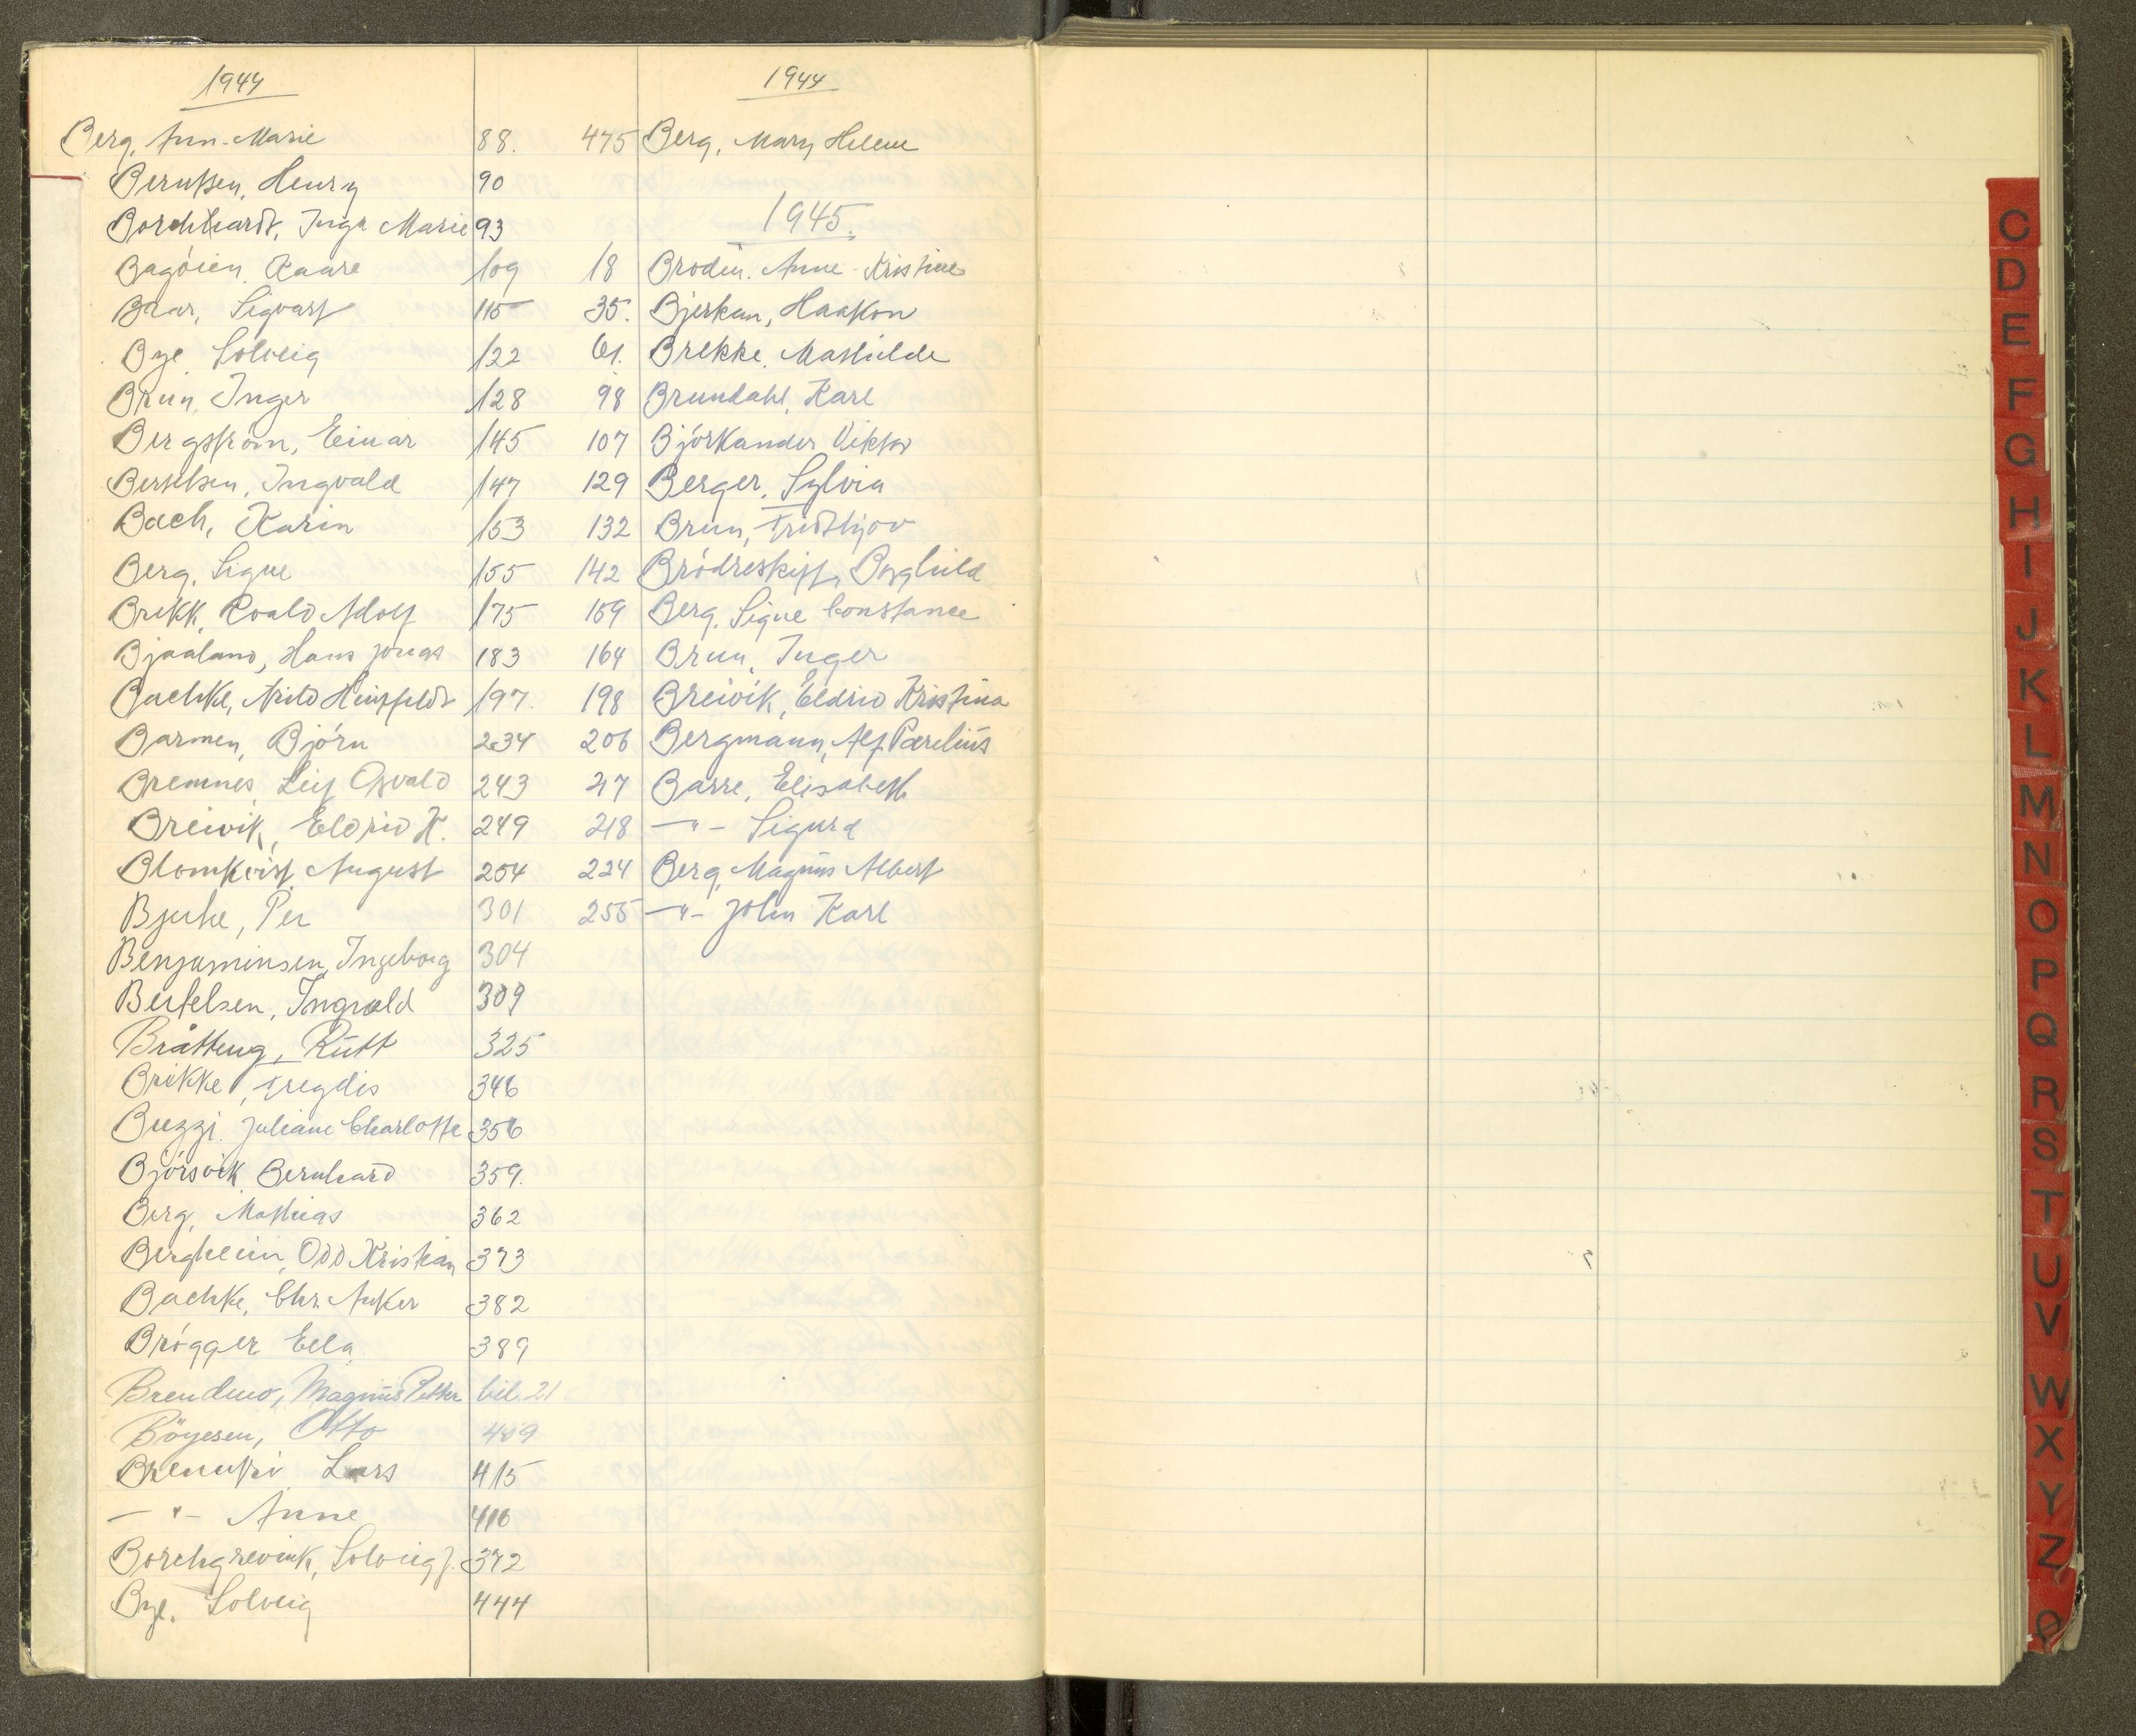 1944
Berg, Ann-Marie 88.
Berntsen, Henry 90
Borchhardt, Inga Marie 93
Bagöien, Kaare 109
Brar, Sigvart 115
Bye Solveig 122
Brun, Inger 128
Bergström, Einar 145
Berthelsen, Ingvald 147
Bach, Karin 153
Berg, Signe 155
Brekk, Roald Adolf 175
Bjaaland, Hans Jonas 183
Bachke, 197.
Barmen, Björn 234
Bremnes, Leif Osvald 243
Breivik, Eldrid K. 249
Blomkvist, August 254
Bjerke, Per 301
Benjaminsen, Ingeborg 304
Bertelsen, Ingvald 309
Bråtteng, Rutt 325
Brekke, Fregdis 346
Buzzi, Juliane Charlotte 356
Björsvik Bernhard 359.
Berg, Mathias 362
Bergheim, Odd Kristian 373
Bachke, Chr. Anker 382
Brögger, Eela 389
Brendmo, Magnus Petter bil. 21
Böyesen, Otto 409
Lars 415
— " — Anne 416
Borchgrevink, Solveig J. 372
Bye. Solveig 444
1944
475 Berg, Mary Helene
1945.
18 Brodin. Anne-Kristine
35. Bjerkan, Haakon
61. Brekke, Mathilde
98 Brundahl, Karl
107 Björkander Viktor
129 Berger, Sylvia
132 Brun, Fridthjov
142 Brödreskift, Borghild
159 Berg, Signe Constance
164 Brun, Inger
198 Breivik, Eldrid Kristina
206 Bergmann, Alf Parelius
217 Barre, Elisabeth
218 — " — Sigurd
224 Berg, Magnus Albert
255 — " — John Karl
C
D
E
F
G
H
I
J
K
L
M
N
O
P
Q
R
S
T
U
V
W
X
Y
Z
Ø